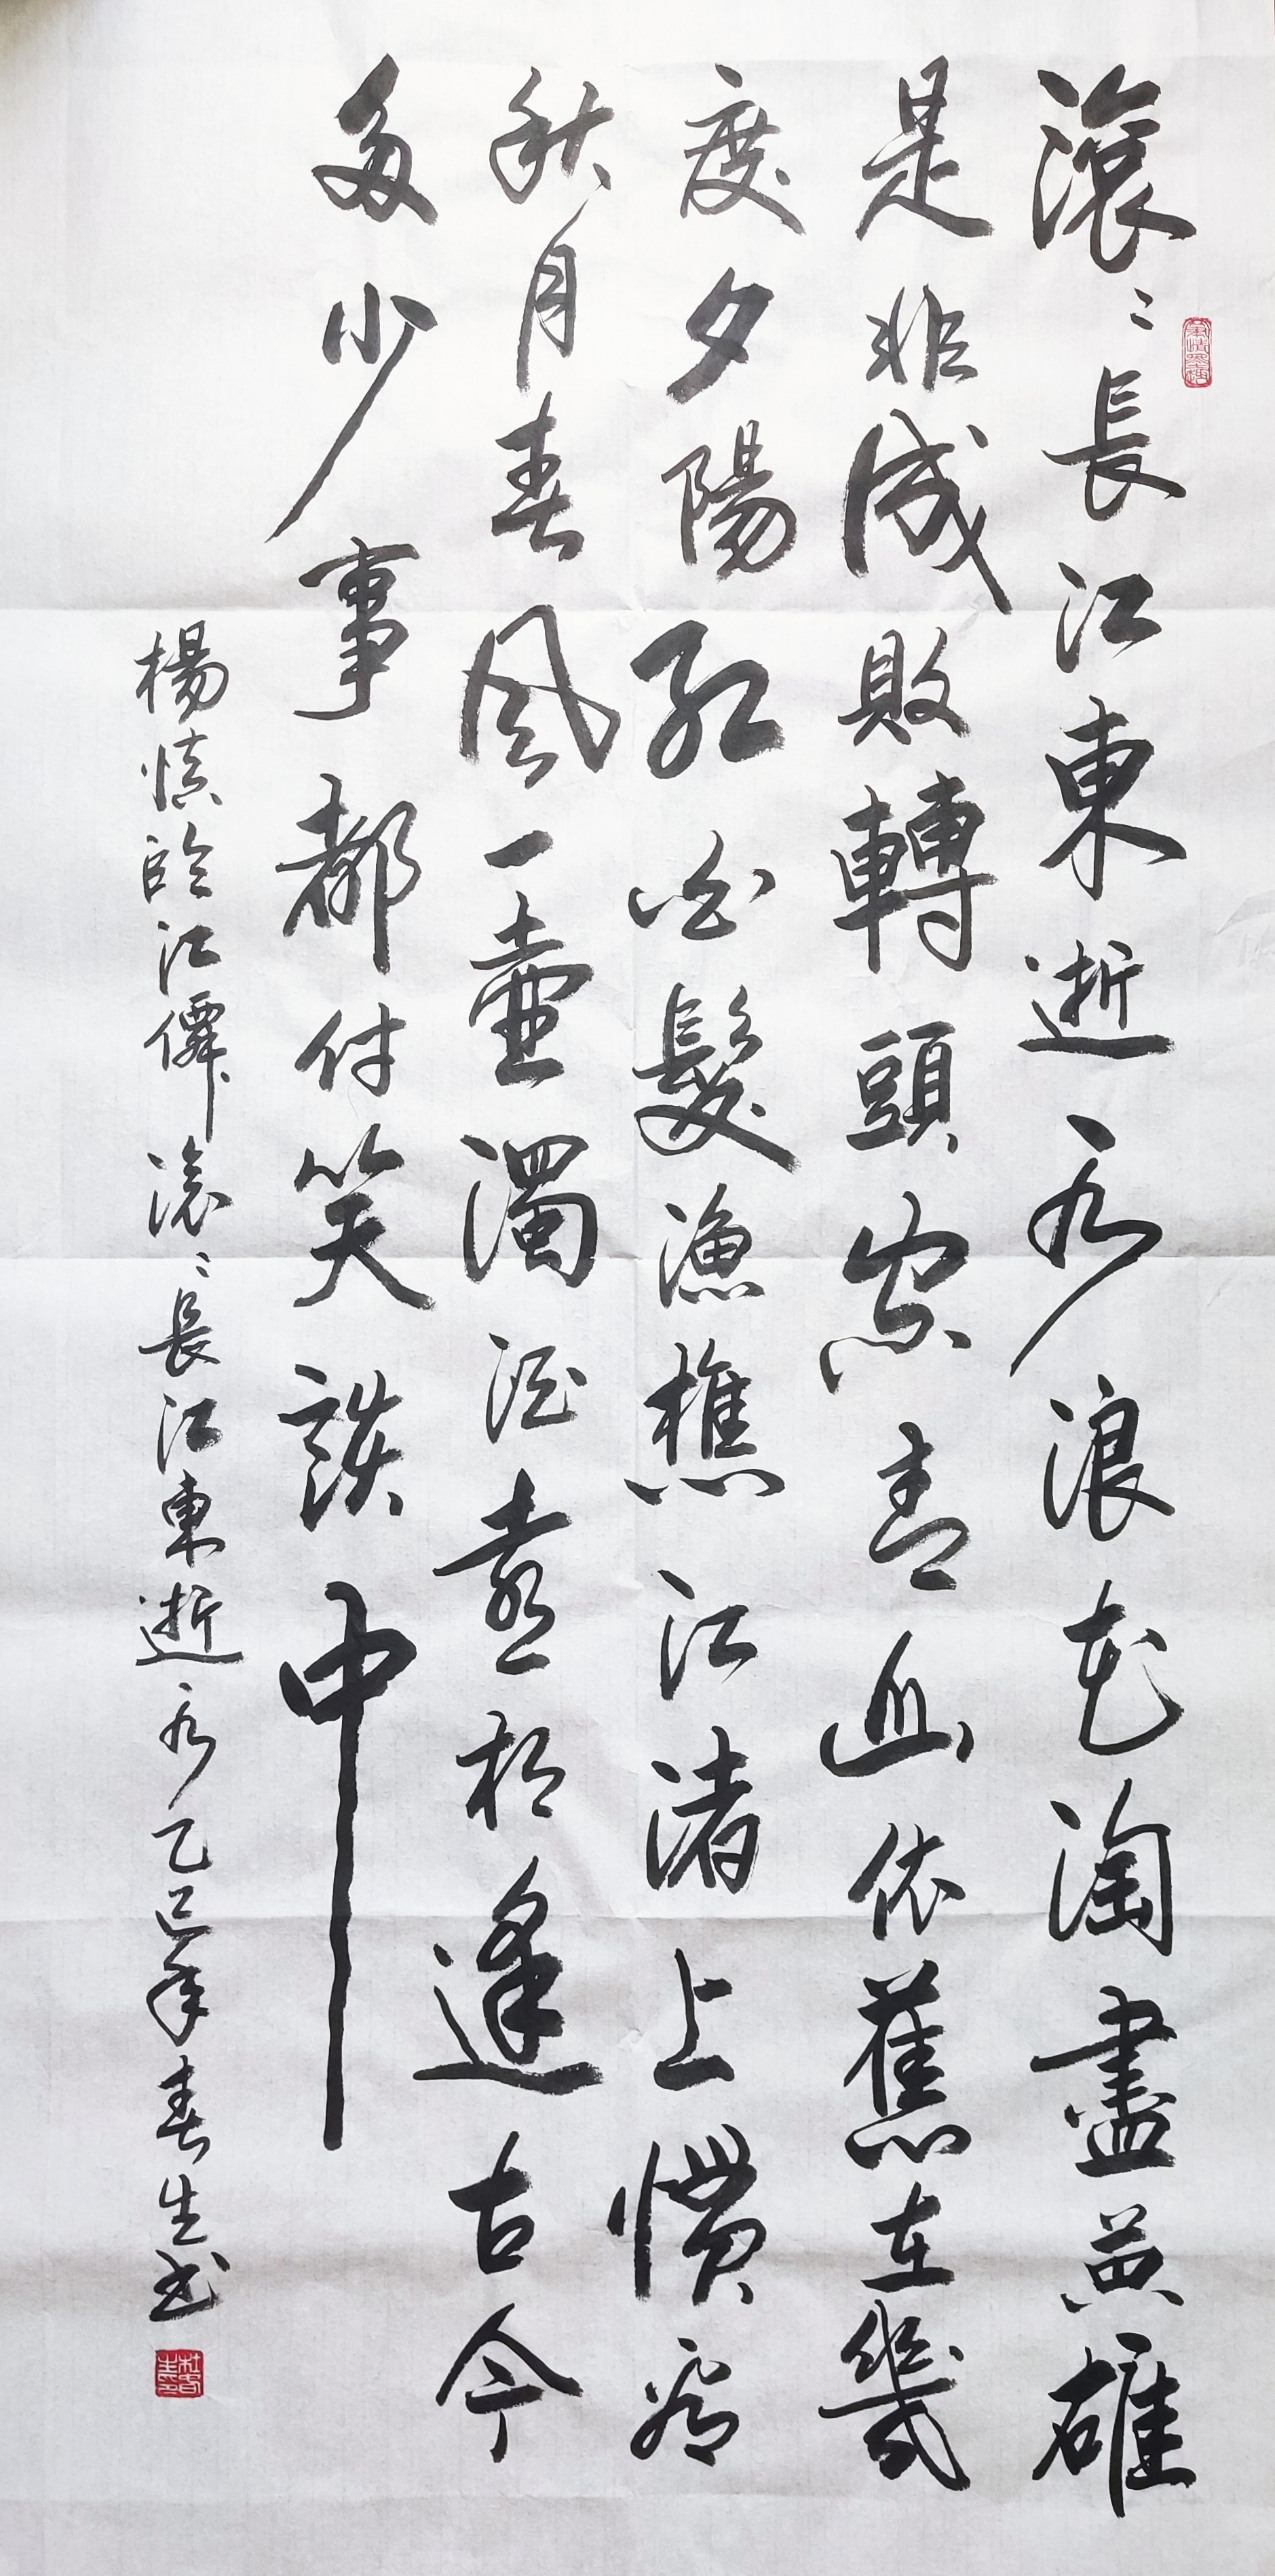 滾〻長江東逝水浪花淘盡英雄
是非成敗轉頭空青山依舊在幾
度夕陽紅白髮漁樵江渚上慣看
秋月春風一壺濁酒喜相逢古今
多少事都付笑談中
楊慎臨江僊滾〻長江東逝水乙巳年春生书